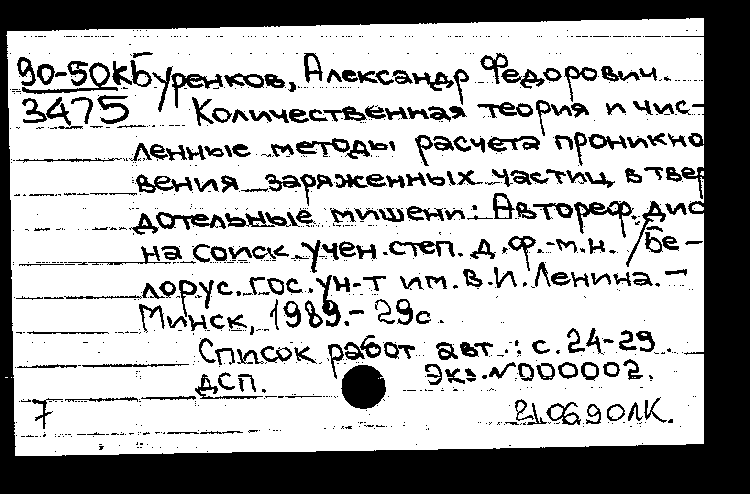 90-50К Буренков, Александр Федорович.
3475 Количественная теория и чис-
ленные методы расчета проникно
вения заряженных частиц в твер
дотельные мишени: Автореф. дис
на соиск. учен. степ. д.ф.-м.н. /Бе-
лорус. гос. ун-т им. В.И. Ленина. -
Минск, 1989. - 29с.
Список работ авт.: с. 24-29.
ДСП. Экз. N000002.
7 21.06.90ЛК.